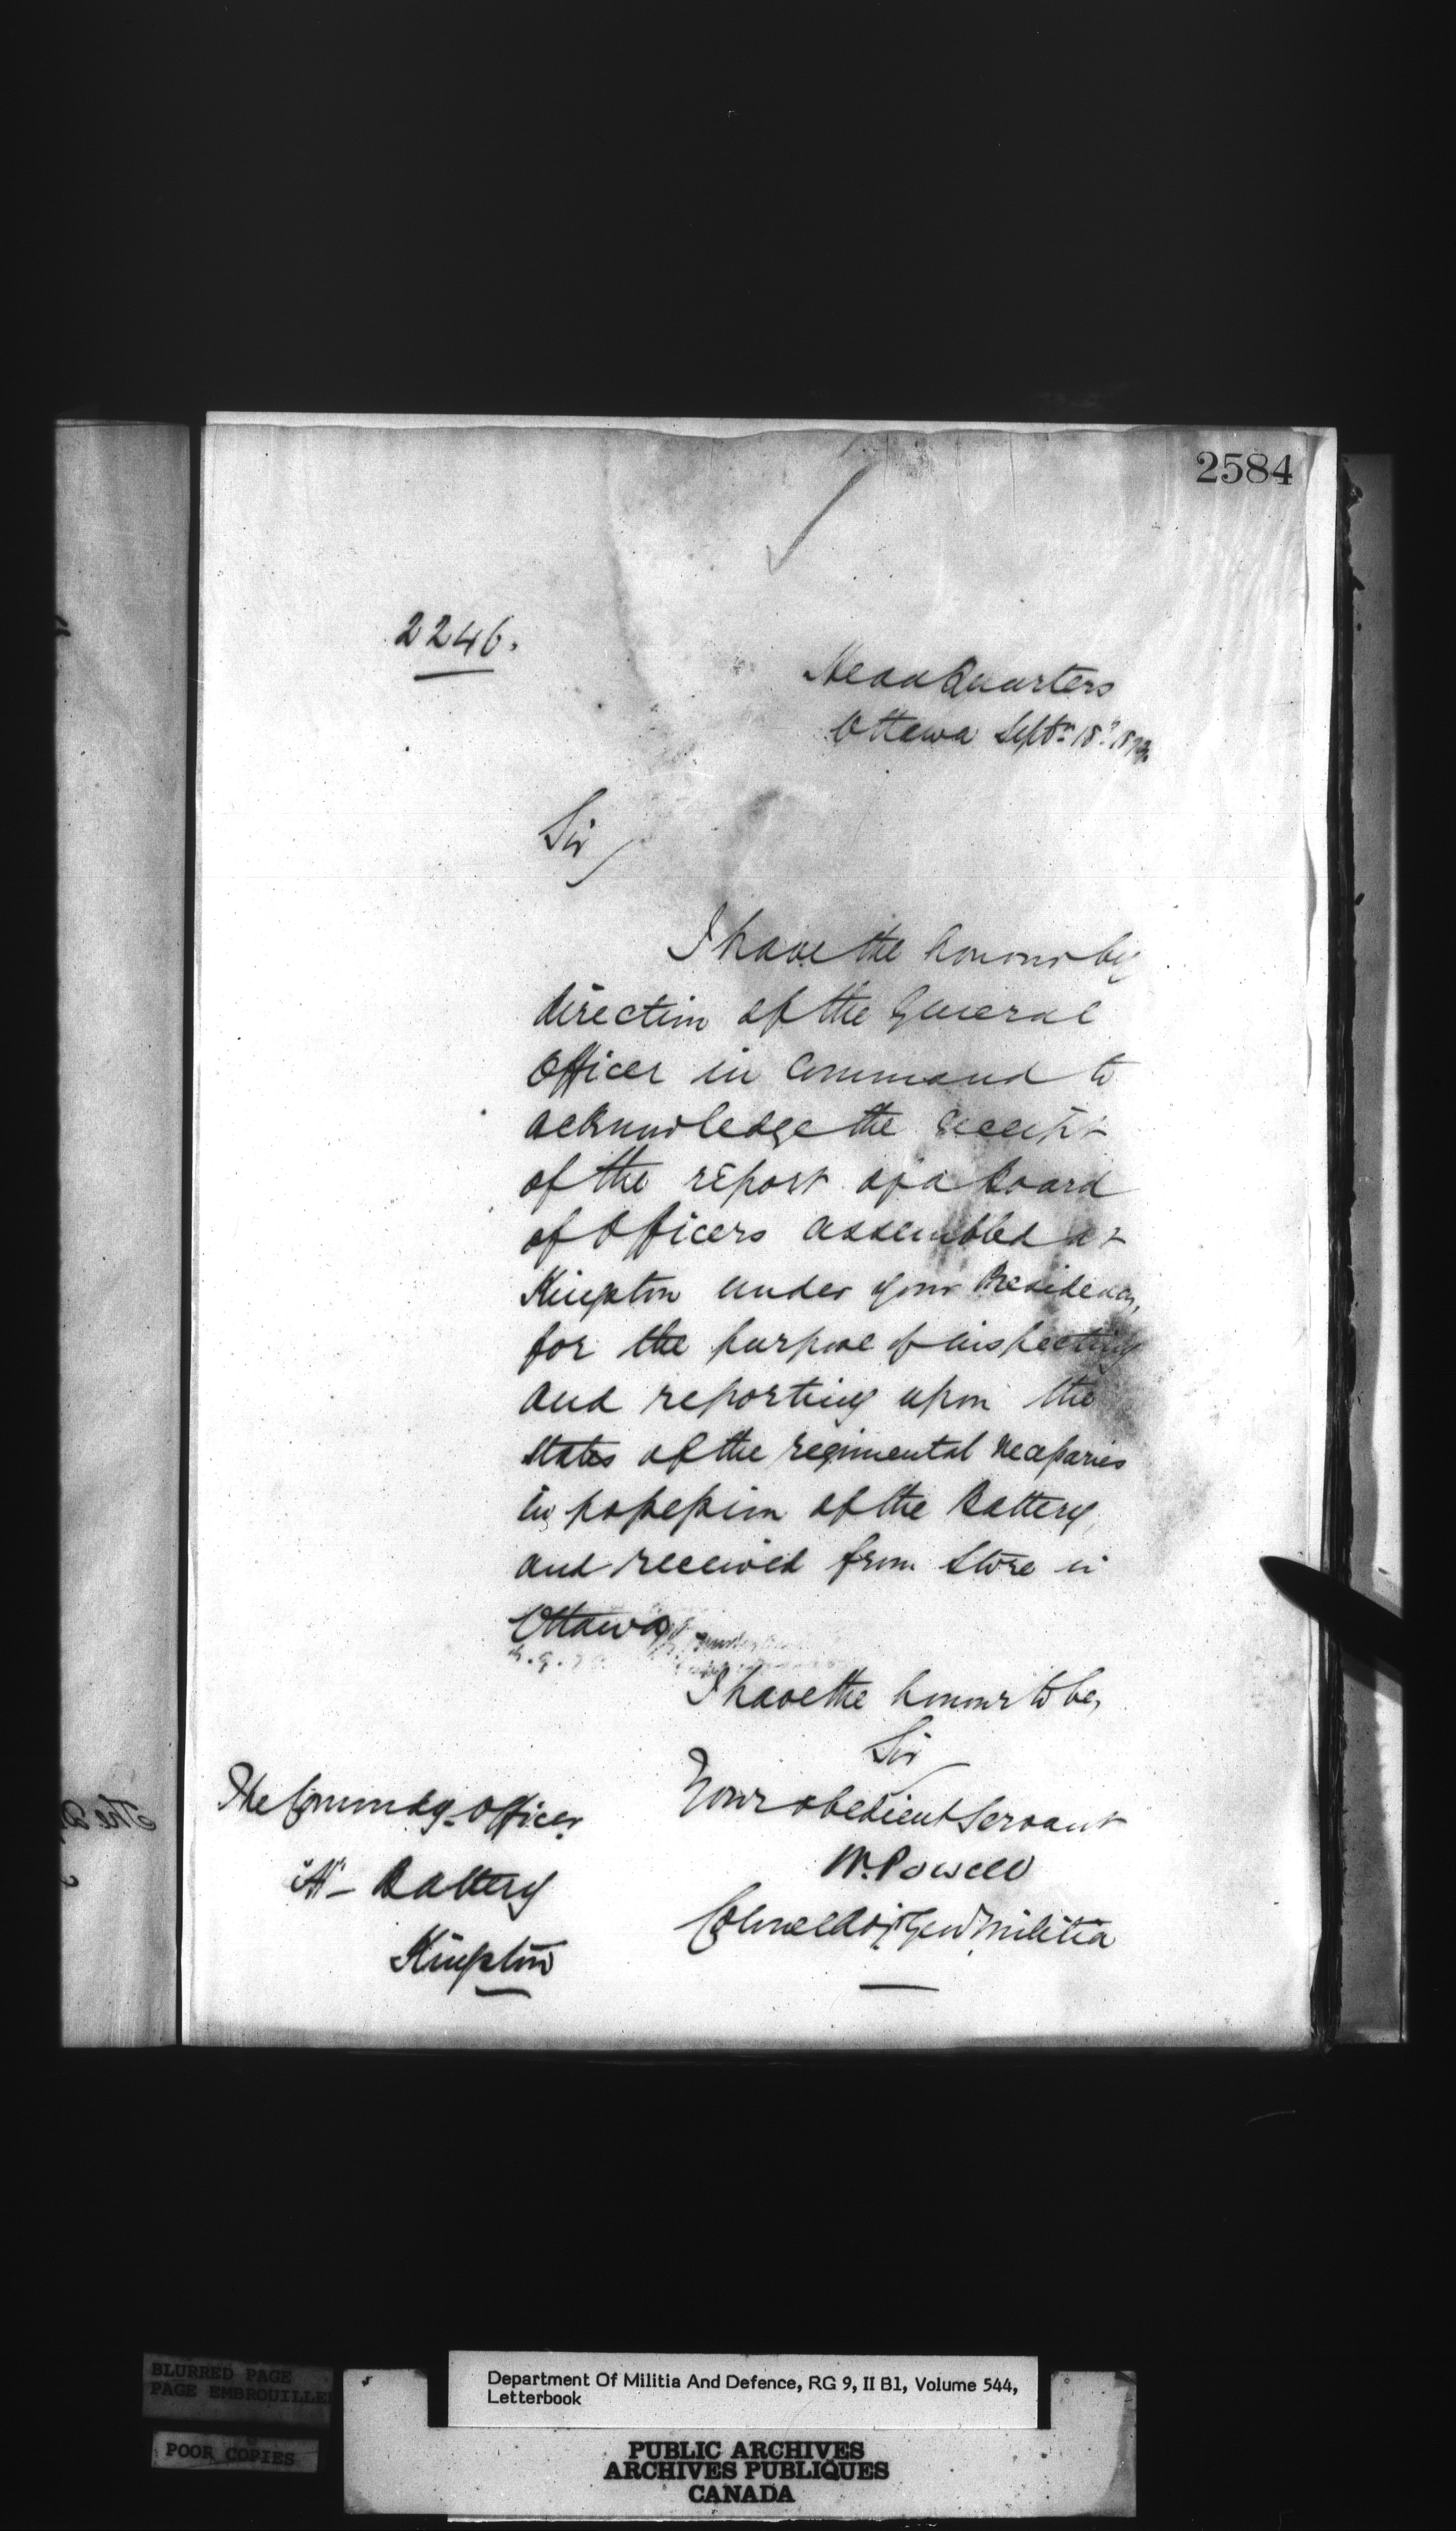 2584
2246.
Head Quarters
Ottawa Septr. 18th 187
Sir
I have the honour by
direction of the General
Officer in Command to
acknowledge the receipt
of the report of a Board
of Officers assembled at
Kingston under your Presidency,
for the purpose of inspecting
and reporting upon the
states of the regimental necessaries
in possession of the Battery,
and received from Store in
Ottawa
I have the honour to be,
Sir
Your obedient Servant
W. Powell
Colonel Adjt Genl Militia
The Commdg. Officer
"A" - Battery
Kingston
BLURRED PAGE
PAGE EMBROUILLEE
POOR COPIES
Department Of Militia And Defence, RG 9, II B1, Volume 544,
Letterbook
PUBLIC ARCHIVES
ARCHIVES PUBLIQUES
CANADA